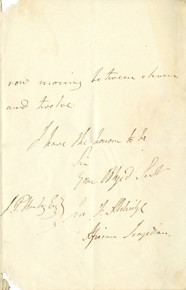 row morning between eleven
and twelve
I have the honor to be
Sir
Your Obed Servt
Ira F. Aldridge
African Tragedian